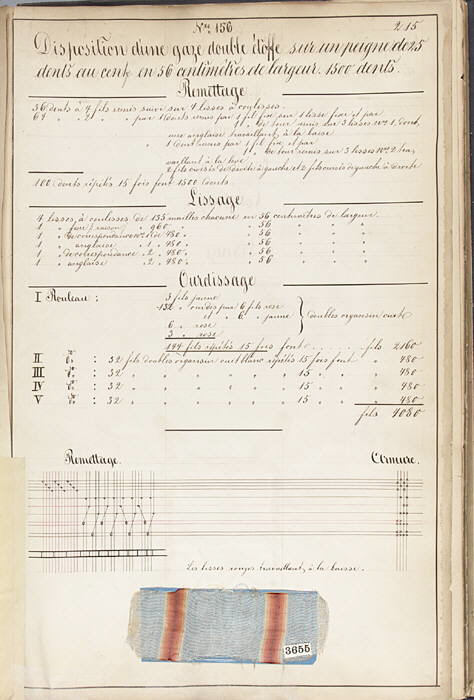 Nro. 156
215
Disposition d'une gaze double étoffe sur un peigne de 25
dents au cent. en 56 centimètres de largeur. 1500 dents.
Remettage
36 dents à 4 fils remis suivi sur 4 lisses à coulisses.
64 " " 2 " par 1 dents remis par 1 fil fixe sur 1 lisse fixe et par
de tour remis sur 3 lisses No. 1 Dont,
une anglaise travaillant, à la baisse
" 1 dent remis par 1 fil fixe et par
de tour remis sur 3 lisses No. 2
vaillant à la
2 fils croisés de droite à gauche et 2 fils croisés de gauche à droite
100 dents répétés 15 fois font 1500 dents.
Lissage
4 lisses, à coulisses de 135 mailles chacune en 56 centimètres de largeur.
1 " fixe 960 " " 56 " " "
1 " de correspondance No. 1 de 480 " " 56 " " "
1 " anglaise " 1 " 480 " " 56 " " "
1 " de correspondance " 2 " 480 " " 56 " " "
1 " anglaise " 2 " 480 " " 56 " " "
Ourdissage
I Rouleau : 3 fils jaune
132 " ourdis par 6 fils rose
" 6 " jaune
doubles organsin cuit
6 " rose
3 " rose
144 fils répétés 15 fois font fils 2160
II do : 32 fils doubles organsin cuit blanc répétés 15 fois font " 480
III do : 32 " " " " " 15 " " " 480
IV do : 32 " " " " " 15 " " " 480
V do : 32 " " " " " 15 " " " 480
fils 4080
Remettage.
Armure.
Les lisses rouges travaillant, à la baisse.
3655